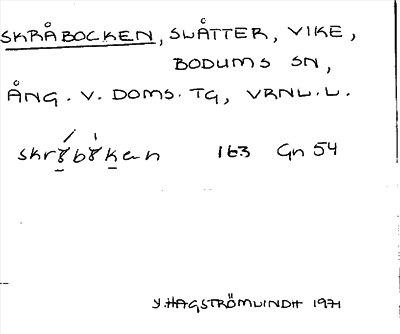 SKRÅBOCKEN, SLÅTTER, VIKE,
BODUMS SN,
ÅNG. V. DOMS. TG, VRNL.L.
163 Gn 54
Y. HAGSTRÖM LINDH 1971